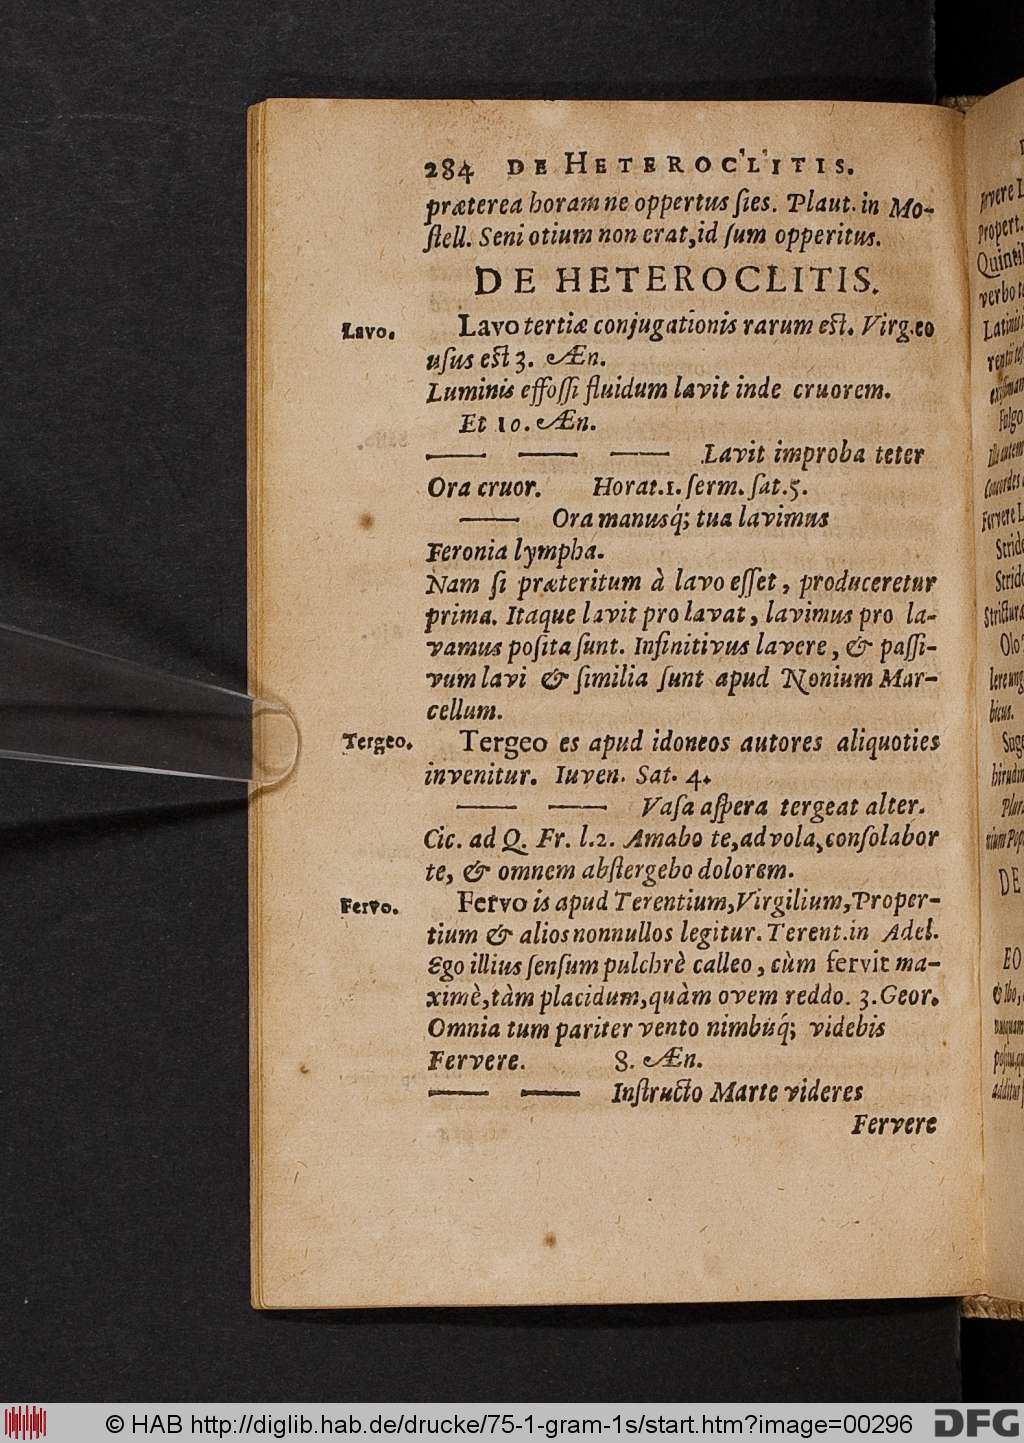 284 DE HETEROCLITIS.
præterea horam ne oppertus ſies. Plaut. in Mo-
ſtell. Seni otium non erat, id ſum opperitus.
DE HETEROCLITIS.
Lavo.
Lavo tertiæ conjugationis rarum eſt. Virg. eo
uſus eſt 3. Æn.
Luminis effoſſi fluidum lavit inde cruorem.
Et 10. Æn.
Lavit improba teter
Ora cruor. Horat. 1. ſerm. ſat. 5.
Ora manusq́; tua lavimus
Feronia lympha.
Nam ſi præteritum à lavo eſſet, produceretur
prima. Itaque lavit pro lavat, lavimus pro la-
vamus poſita ſunt. Infinitivus lavere, & paſſi-
vum lavi & ſimilia ſunt apud Nonium Mar-
cellum.
Tergeo.
Tergeo es apud idoneos autores aliquoties
invenitur. Iuven. Sat. 4.
Vaſa aſpera tergeat alter.
Cic. ad Q. Fr. l. 2. Amabo te, advola, conſolabor
te, & omnem abſtergebo dolorem.
Fervo.
Fervo is apud Terentium, Virgilium, Proper-
tium & alios nonnullos legitur. Terent. in Adel.
Ego illius ſenſum pulchrè calleo, cùm fervit ma-
ximè, tàm placidum, quàm ovem reddo. 3. Geor.
Omnia tum pariter vento nimbisq́; videbis
Fervere. 8. Æn.
Inſtructo Marte videres
Fervere
Propert.
Quintil
verbo
Fulgo
Fervere
Stride
Strictura
Olo
bicus.
hirudin
DE
EO
© HAB http://diglib.hab.de/drucke/75-1-gram-1s/start.htm?image=00296
DFG